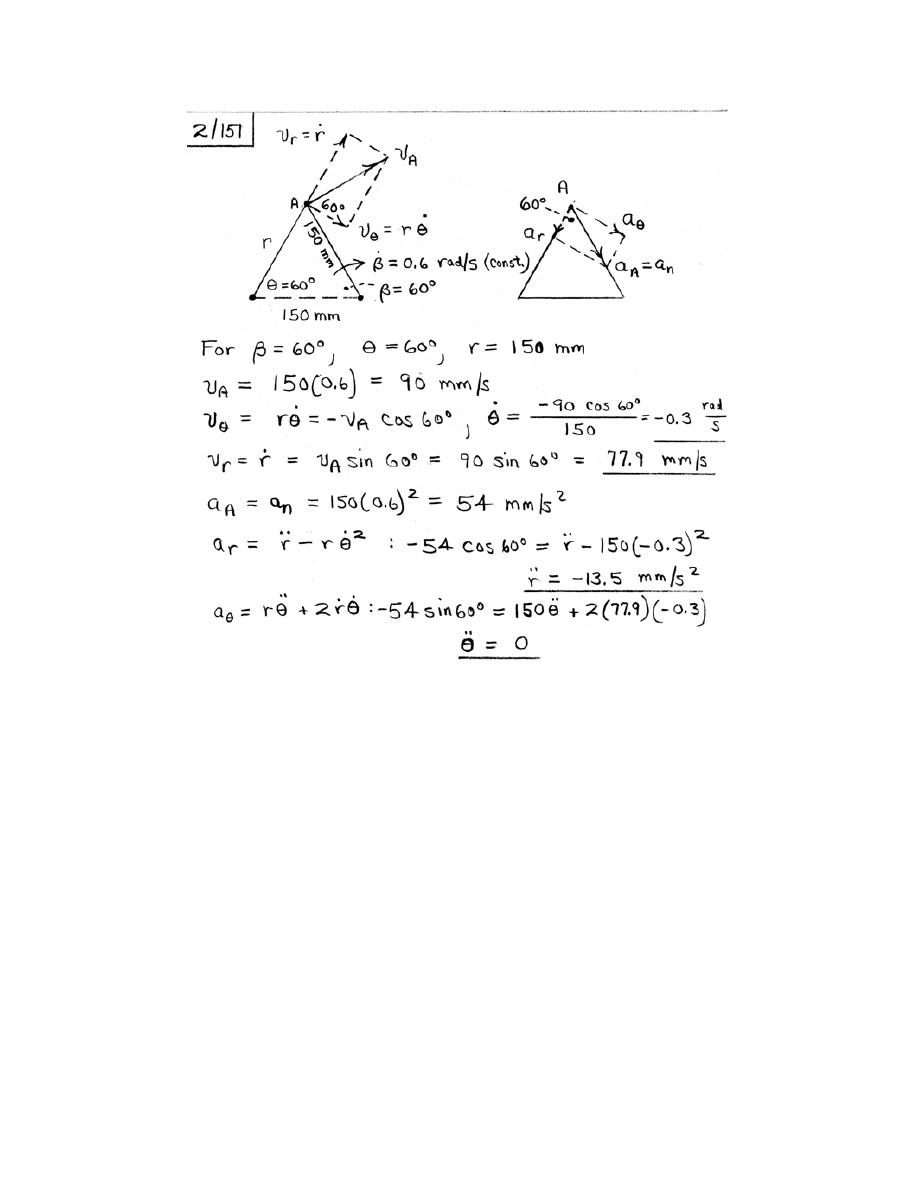 2/151
v_r = ṙ
v_A
A
60°
v_θ = r θ̇
r
150 mm
β̇ = 0.6 rad/s (const.)
θ = 60°
β = 60°
150 mm
A
60°
a_θ
a_r
a_A = a_n
For β = 60°, θ = 60°, r = 150 mm
v_A = 150(0.6) = 90 mm/s
v_θ = rθ̇ = -v_A cos 60°, θ̇ = -90 cos 60° / 150 = -0.3 rad/s
v_r = ṙ = v_A sin 60° = 90 sin 60° = 77.9 mm/s
a_A = a_n = 150(0.6)² = 54 mm/s²
a_r = r̈ - rθ̇² : -54 cos 60° = r̈ - 150(-0.3)²
r̈ = -13.5 mm/s²
a_θ = rθ̈ + 2ṙθ̇ : -54 sin 60° = 150θ̈ + 2(77.9)(-0.3)
θ̈ = 0